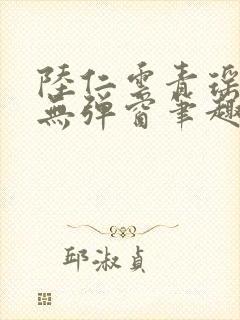 陸仁雲青瑤
無彈窗筆趣
邱淑貞